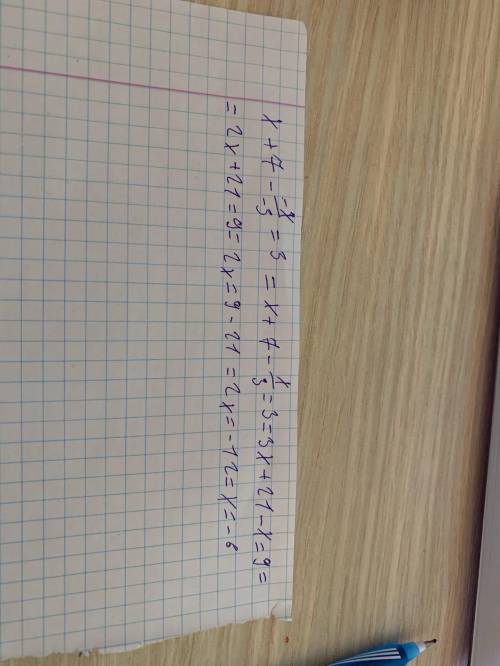 x + 7 - -x/-3 = 3 = x + 7 - x/3 = 3 = 3x + 21 - x = 9 =
= 2x + 21 = 9 = 2x = 9 - 21 = 2x = -12 = x = -6